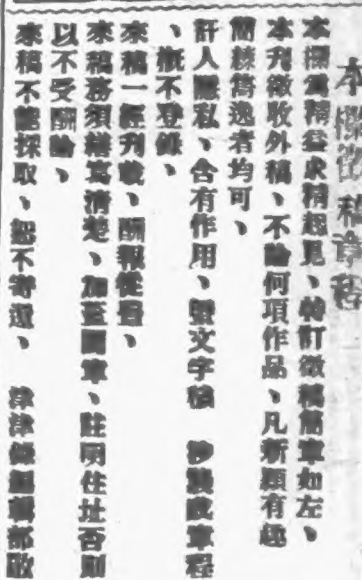 本欄徵稿章程
本欄爲精益求精起見、特訂徵稿簡章如左、
本刊徵收外稿、不論何項作品、凡新穎有趣
簡練雋逸者均可、
訐人隱私、含有作用、文字 抄襲 章程
、概不登錄、
來稿一經刊載、酬報從
來稿務須繕寫清楚、加蓋圖章、註明住址否則
以不受酬論、
來稿不能採取、恕不寄還、 津津 編輯部啟